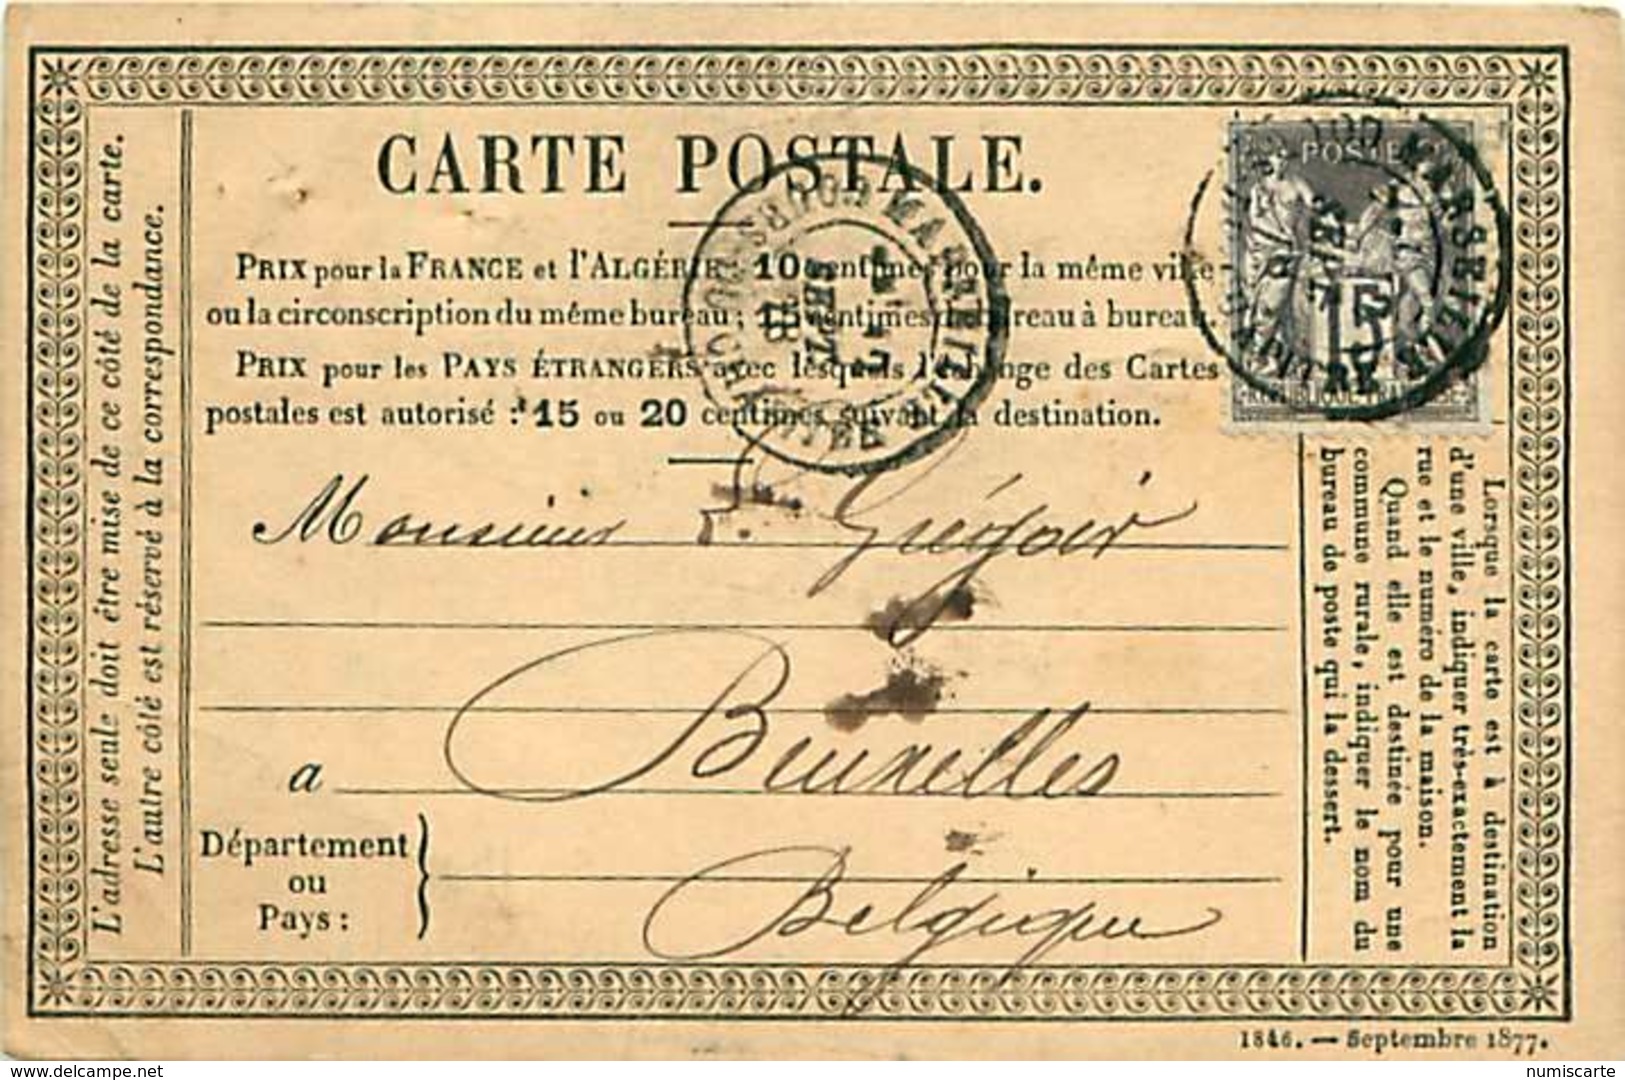 CARTE POSTALE.
PRIX pour la FRANCE et l'ALGÉRIE : 10 centimes pour la même ville
ou la circonscription du même bureau ; 15 centimes de bureau à bureau.
PRIX pour les PAYS ÉTRANGERS avec lesquels l'échange des Cartes
postales est autorisé : 15 ou 20 centimes suivant la destination.
Monsieur E. Grégoir
a Bruxelles
Département
ou
Pays :
Belgique
L'adresse seule doit être mise de ce côté de la carte.
L'autre côté est réservé à la correspondance.
Lorsque la carte est à destination
d'une ville, indiquer très-exactement la
rue et le numéro de la maison.
Quand elle est destinée pour une
commune rurale, indiquer le nom du
bureau de poste qui la dessert.
POSTE
15
REPUBLIQUE FRANÇAISE
MARSEILLE
MARSEILLE
SEPT.
78
1846. — Septembre 1877.
delcampe.net
numiscarte